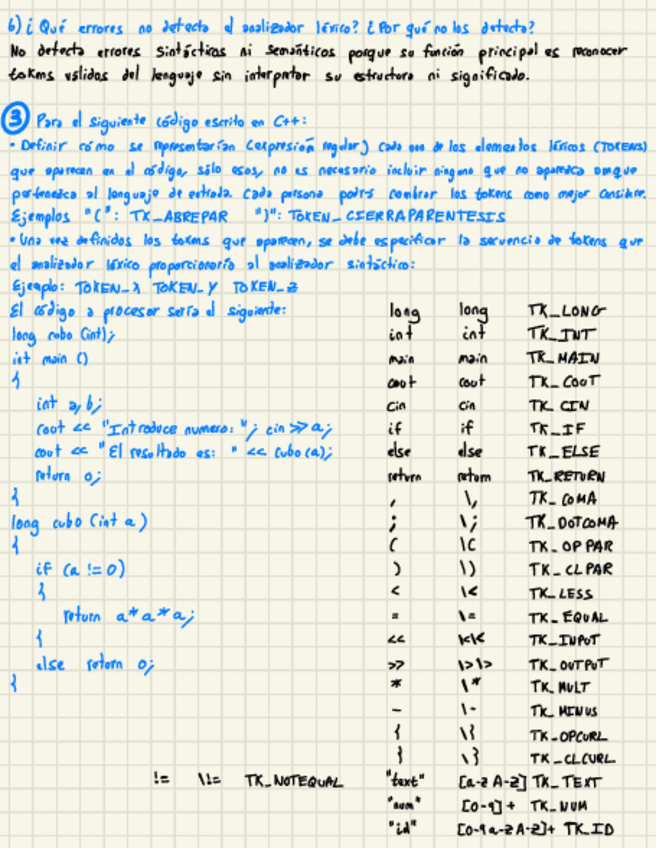 b) ¿Qué errores no detecta el analizador léxico? ¿Por qué no los detecta?
No detecta errores sintácticos ni semánticos porque su función principal es reconocer
tokens válidos del lenguaje sin interpretar su estructura ni significado.
③ Para el siguiente código escrito en C++:
• Definir cómo se representarían (expresión regular) cada uno de los elementos léxicos (TOKENS)
que aparecen en el código, sólo esos, no es necesario incluir ninguno que no aparezca aunque
pertenezca al lenguaje de entrada. Cada persona podrá nombrar los tokens como mejor considere.
Ejemplos "(": TK_ABREPAR ")": TOKEN_CIERRAPARENTESIS
• Una vez definidos los tokens que aparecen, se debe especificar la secuencia de tokens que
el analizador léxico proporcionaría al analizador sintáctico:
Ejemplo: TOKEN_X TOKEN_Y TOKEN_Z
El código a procesar sería el siguiente:
long cubo (int);
int main ()
{
int a,b;
cout << "Introduce numero: "; cin >> a;
cout << "El resultado es: " << cubo(a);
return 0;
}
long cubo (int a)
{
if (a != 0)
{
return a*a*a;
}
else return 0;
}
long long TK_LONG
int int TK_INT
main main TK_MAIN
cout cout TK_COUT
cin cin TK_CIN
if if TK_IF
else else TK_ELSE
return return TK_RETURN
, \, TK_COMA
; \; TK_DOTCOMA
( \( TK_OPPAR
) \) TK_CLPAR
< \< TK_LESS
= \= TK_EQUAL
<< \<\< TK_INPUT
>> \>\> TK_OUTPUT
* \* TK_MULT
- \- TK_MINUS
{ \{ TK_OPCURL
} \} TK_CLCURL
!= \!= TK_NOTEQUAL "text" [a-z A-Z] TK_TEXT
"num" [0-9]+ TK_NUM
"id" [0-9a-zA-Z]+ TK_ID